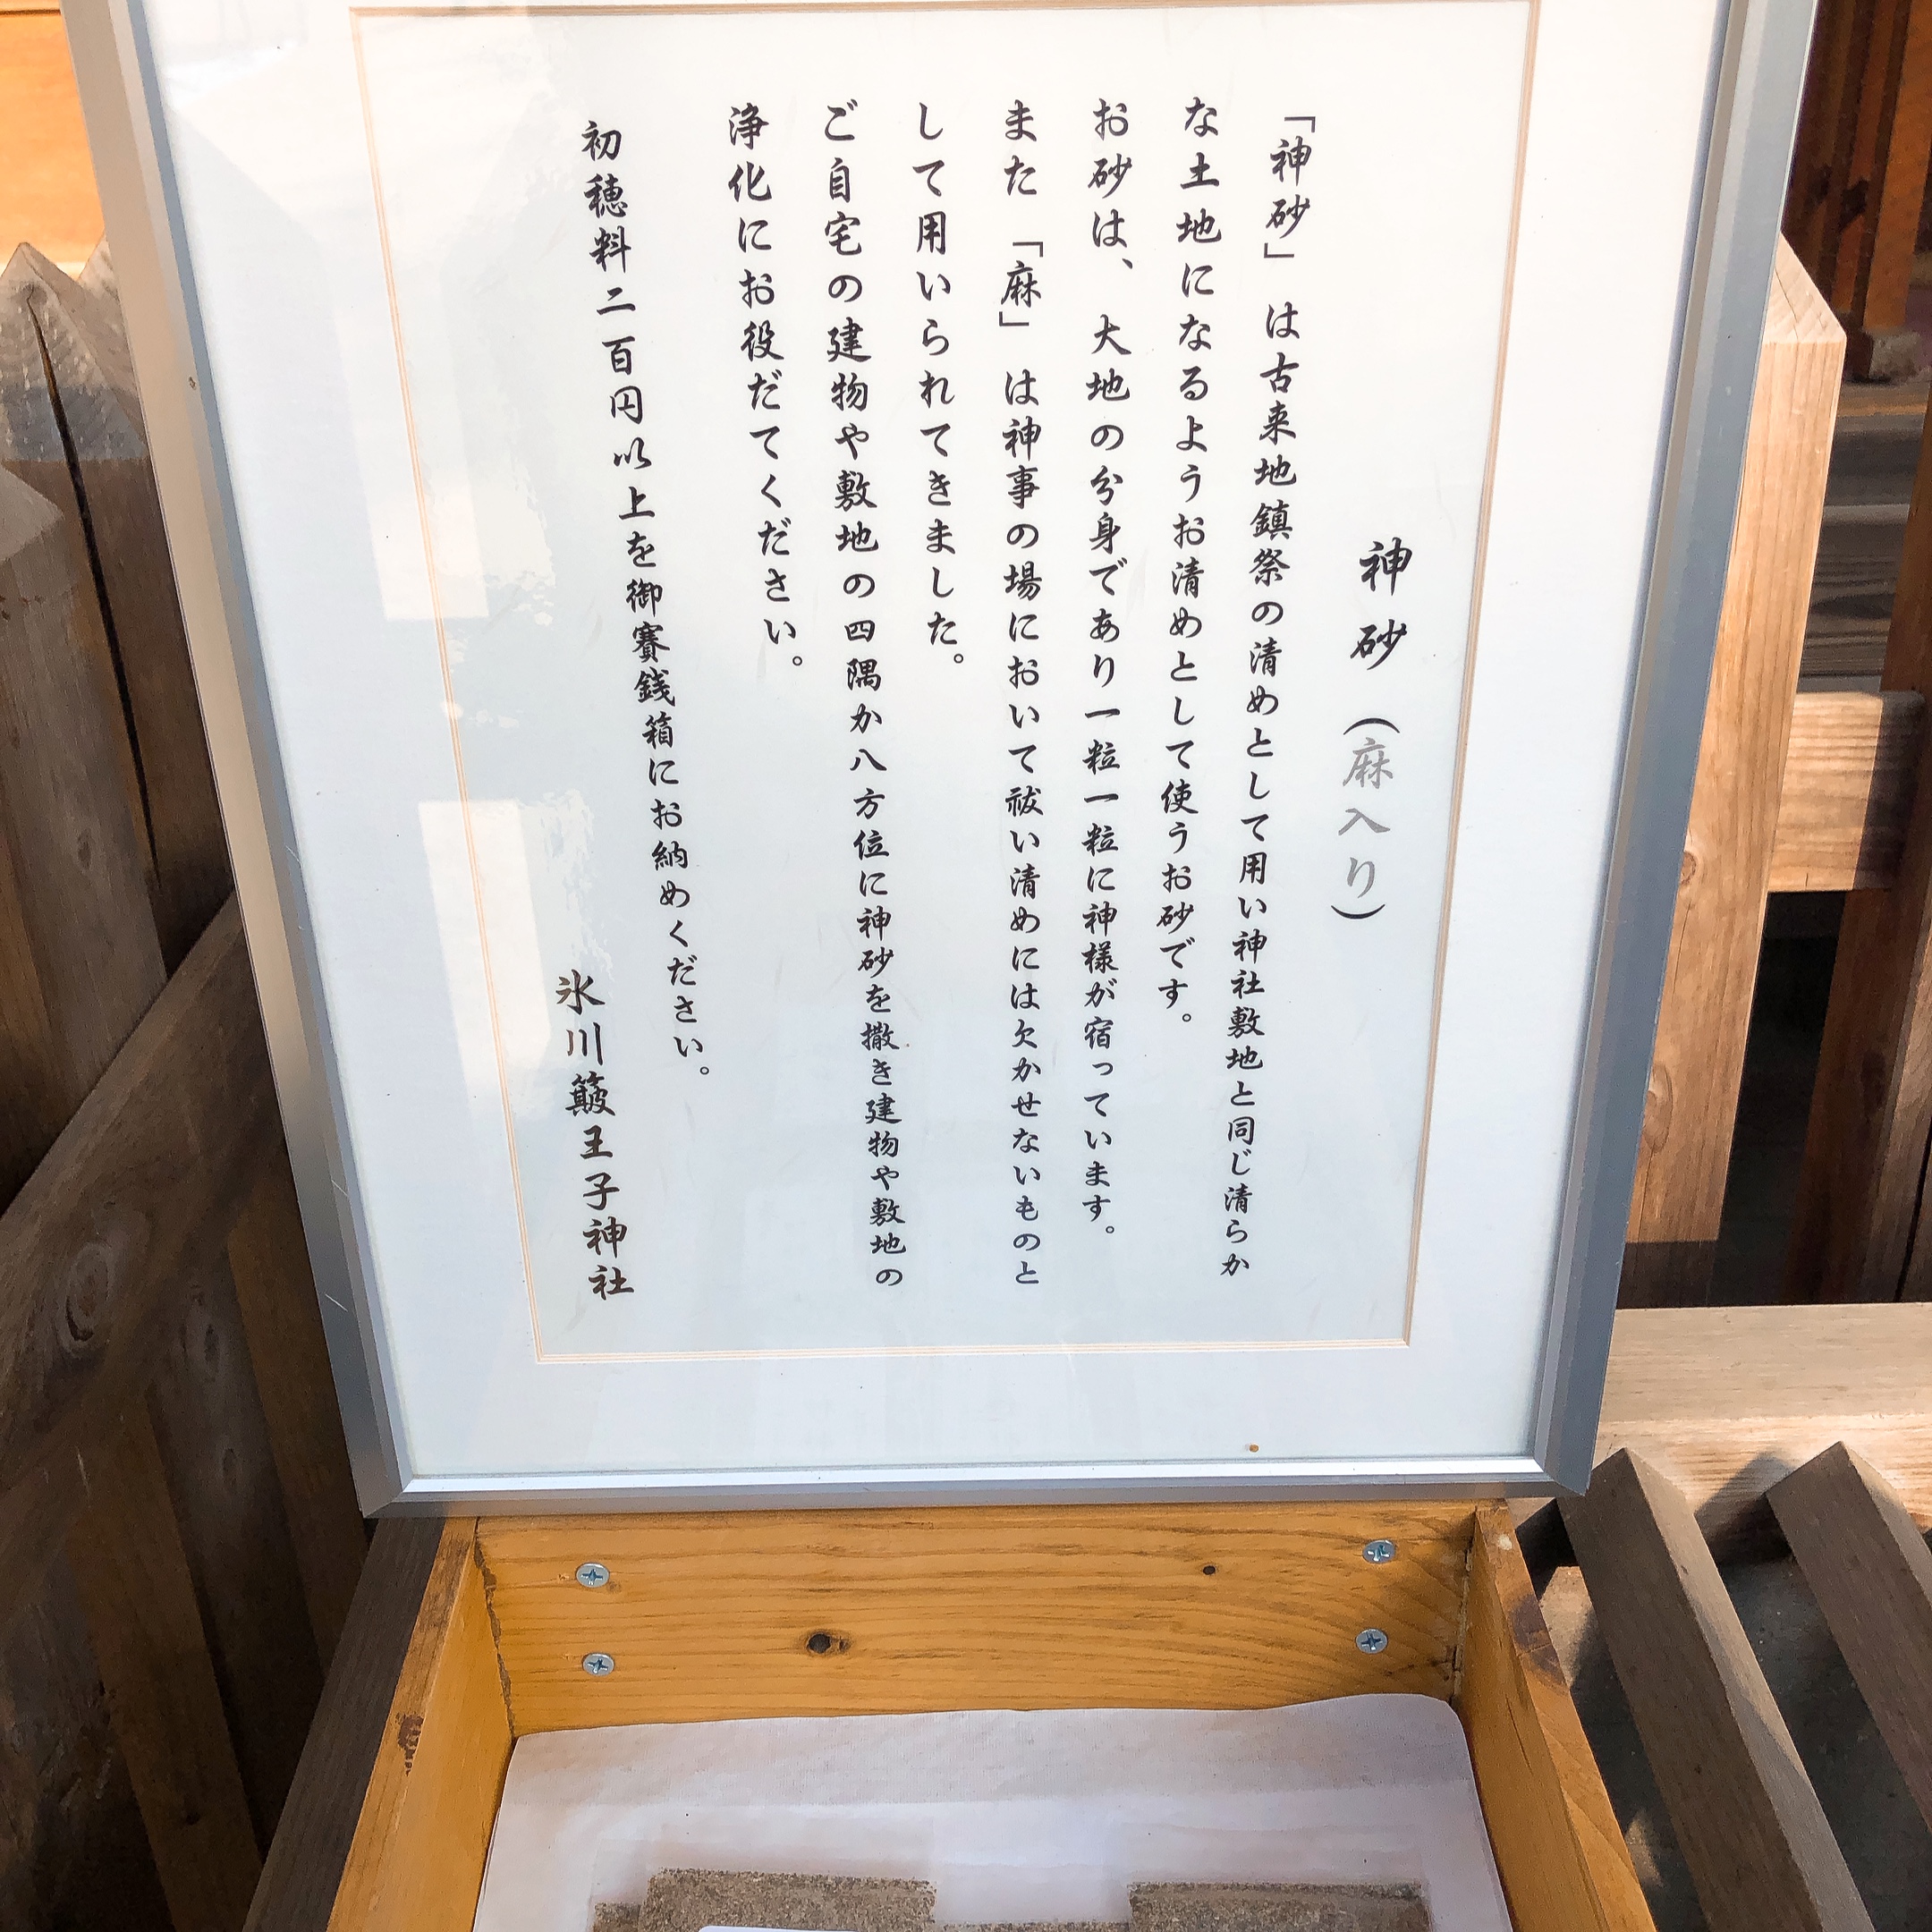 神砂（麻入り）
「神砂」は古来地鎮祭の清めとして用い神社敷地と同じ清らか
な土地になるようお清めとして使うお砂です。
お砂は、大地の分身であり一粒一粒に神様が宿っています。
また「麻」は神事の場において祓い清めには欠かせないものと
して用いられてきました。
ご自宅の建物や敷地の四隅か八方位に神砂を撒き建物や敷地の
浄化にお役だてください。
初穂料二百円以上を御賽銭箱にお納めください。
氷川簸王子神社